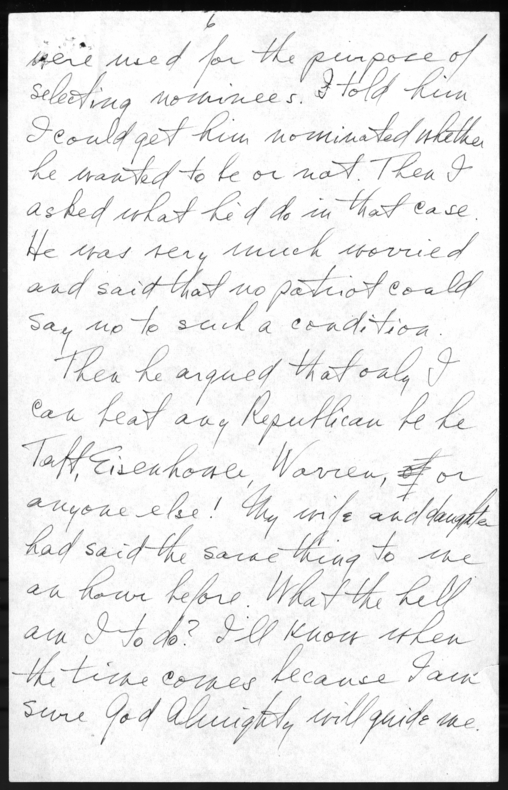 6
were used for the purpose of
selecting nominees. I told him
I could get him nominated whether
he wanted to be or not. Then I
asked what he'd do in that case.
He was very much worried
and said that no patriot could
say no to such a condition.
Then he argued that only I
can beat any Republican be he
Taft, Eisenhower, Warren, or
anyone else! My wife and daughter
had said the same thing to me
an hour before. What the hell
am I to do? I'll know when
the time comes because I am
sure God Almighty will guide me.